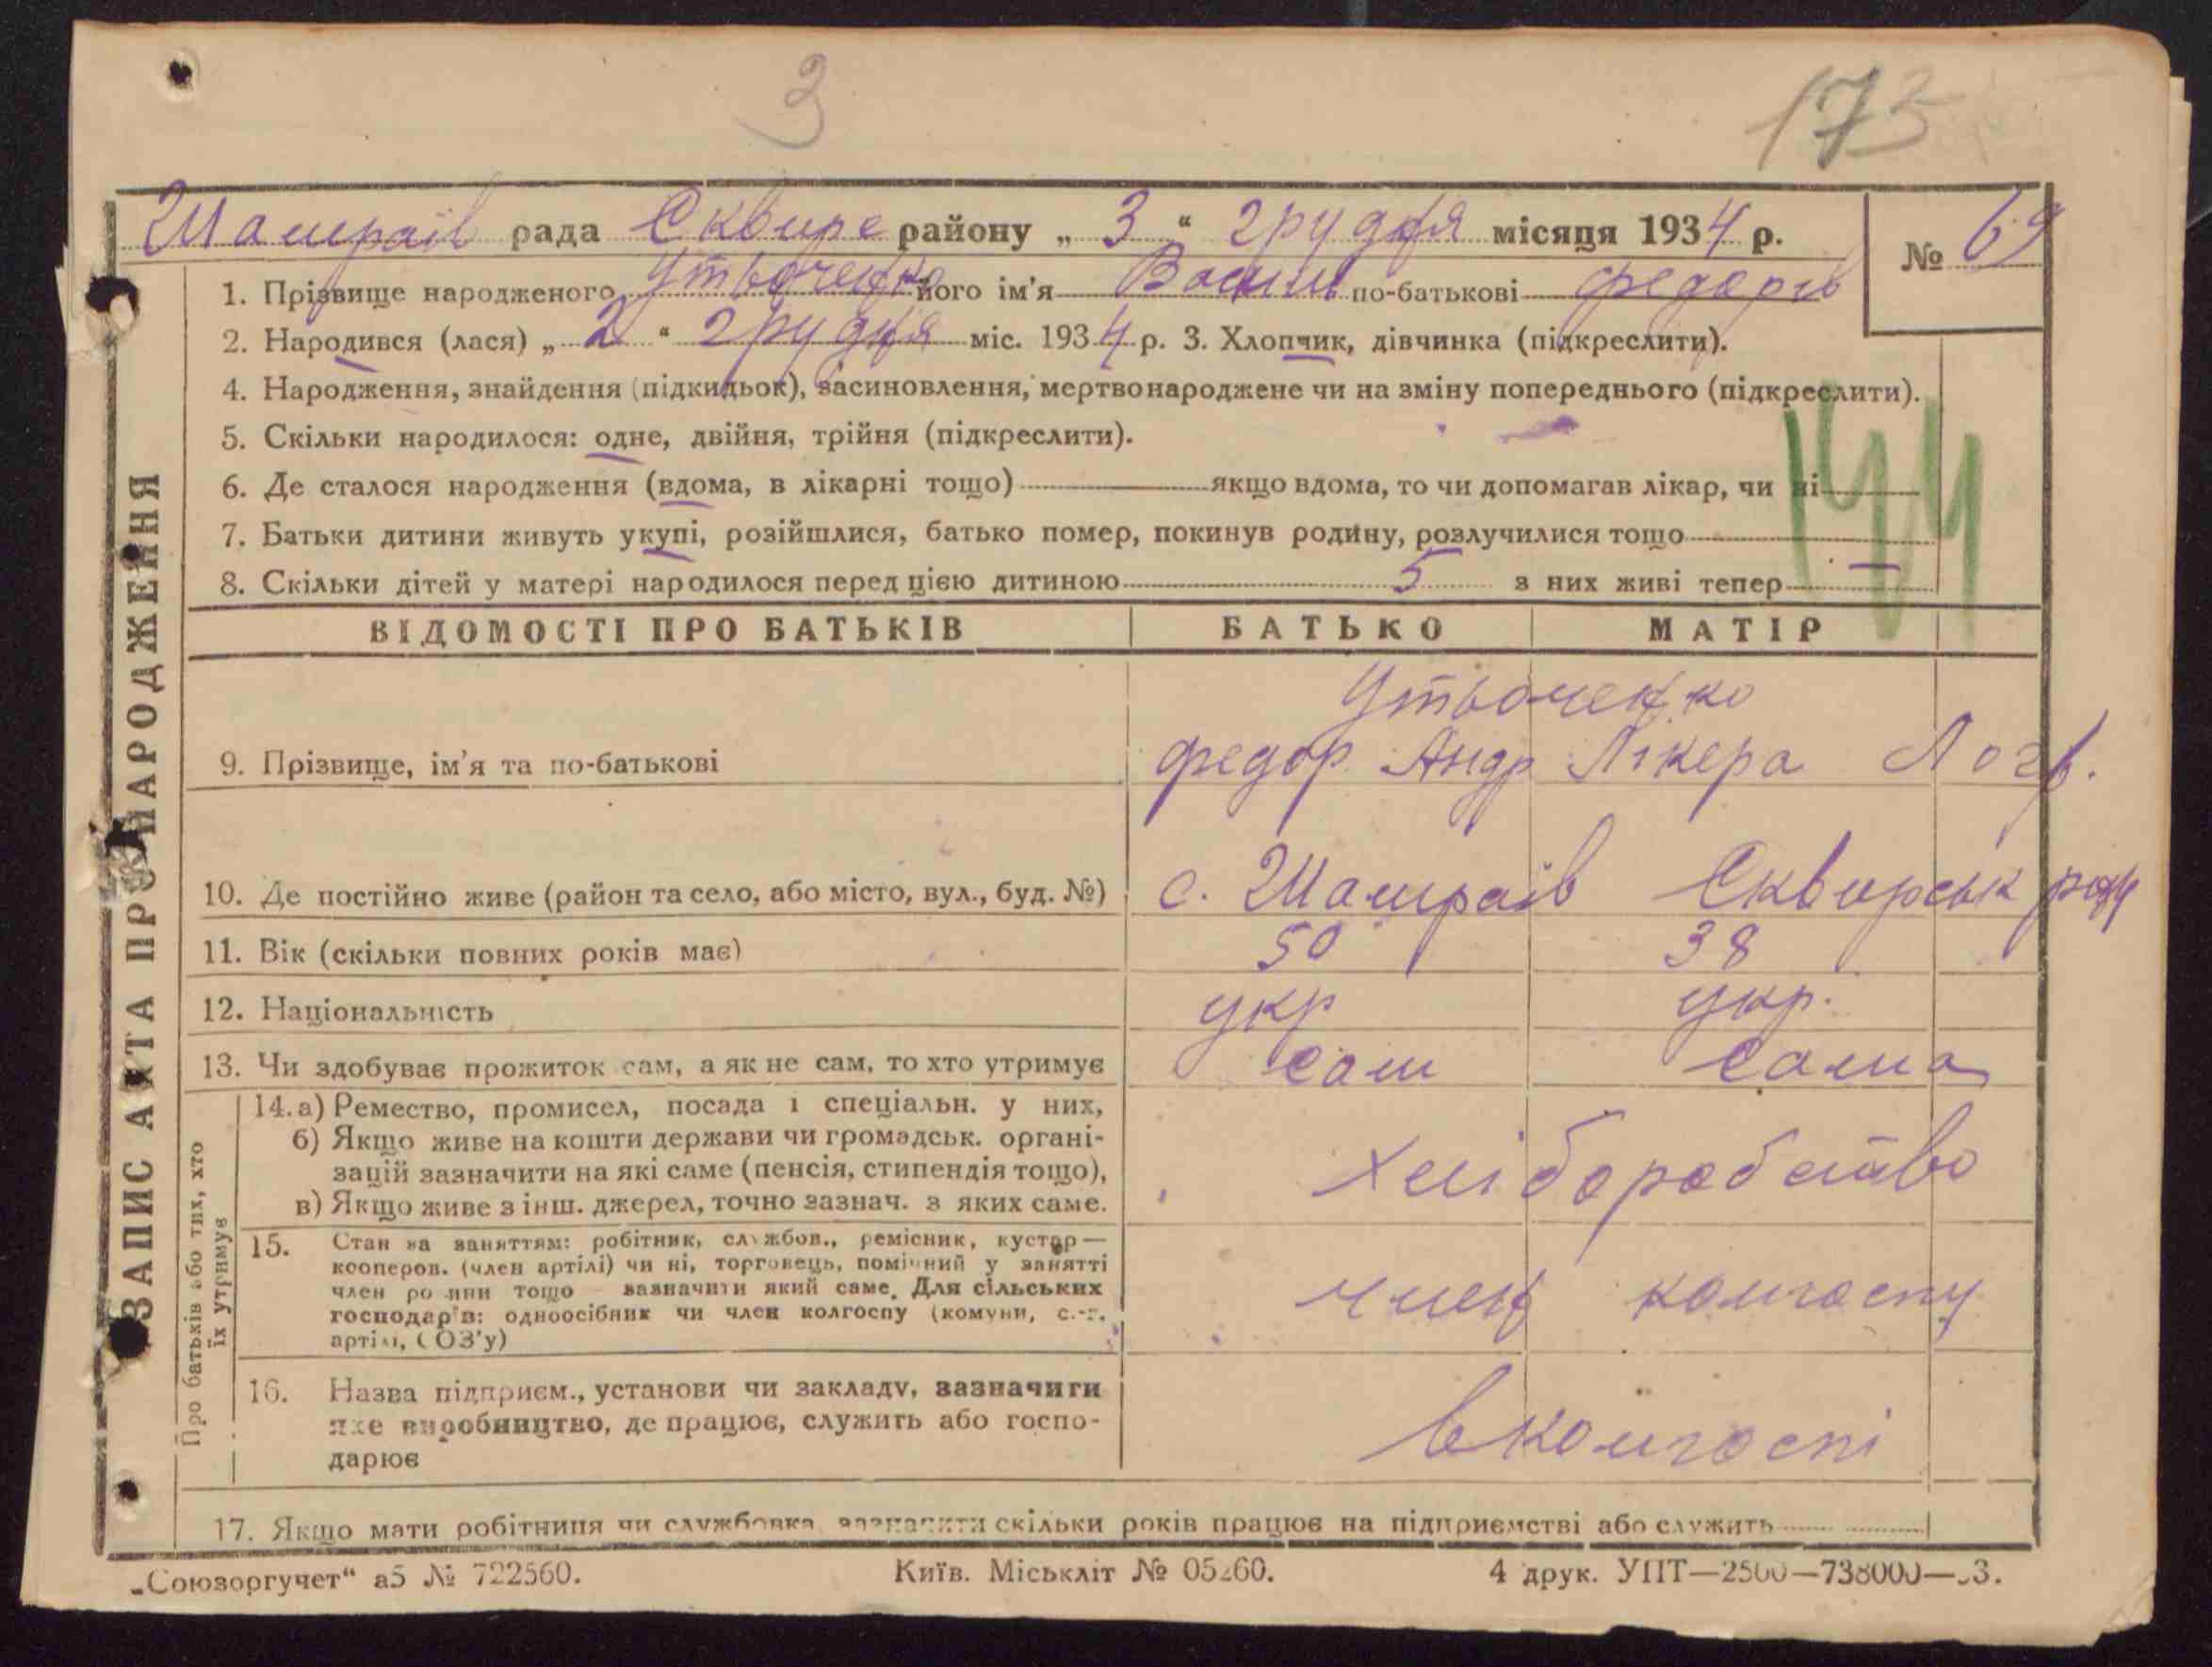 3
173
Шамраїв рада Сквире району „ 3 “ грудня місяця 1934 р. № 69
1. Прізвище народженого Утвоченко його ім'я Василь по-батькові федорів
2. Народився (лася) „ 2 “ грудня міс. 1934 р. 3. Хлопчик, дівчинка (підкреслити).
4. Народження, знайдення (підкидьок), засиновлення, мертвонароджене чи на зміну попереднього (підкреслити).
5. Скільки народилося: одне, двійня, трійня (підкреслити).
6. Де сталося народження (вдома, в лікарні тощо) якщо вдома, то чи допомагав лікар, чи ні
7. Батьки дитини живуть укупі, розійшлися, батько помер, покинув родину, розлучилися тощо
144
8. Скільки дітей у матері народилося перед цією дитиною 5 з них живі тепер —
ВІДОМОСТІ ПРО БАТЬКІВ БАТЬКО МАТІР
Утвоченко
9. Прізвище, ім'я та по-батькові федор Андр Лікера
10. Де постійно живе (район та село, або місто, вул., буд. №) с. Шамраїв Сквирськ рну
11. Вік (скільки повних років має) 50 38
12. Національність укр укр.
13. Чи здобуває прожиток сам, а як не сам, то хто утримує сам сама
14. а) Ремество, промисел, посада і спеціальн. у них,
б) Якщо живе на кошти держави чи громадськ. органі-
зацій зазначити на які саме (пенсія, стипендія тощо),
в) Якщо живе з інш. джерел, точно зазнач. з яких саме.
хліборобство
15. Стан за заняттям: робітник, службов., ремісник, кустар—
кооперов. (член артілі) чи ні, торговець, помічний у занятті
член родини тощо зазначити який саме. Для сільських
господарів: одноосібник чи член колгоспу (комуни, с.-г.
артілі, СОЗ'у)
член колгоспу
16. Назва підприєм., установи чи закладу, зазначити
яке виробництво, де працює, служить або госпо-
дарює
в колгоспі
17. Якщо мати робітниця чи службовка, зазначити скільки років працює на підприємстві або служить
Про батьків або тих, хто
їх утримує
ЗАПИС АКТА ПРО НАРОДЖЕННЯ
„Союзоргучет“ а5 № 722560. Київ. Міськліт № 05260. 4 друк. УПТ—2500—738000—33.